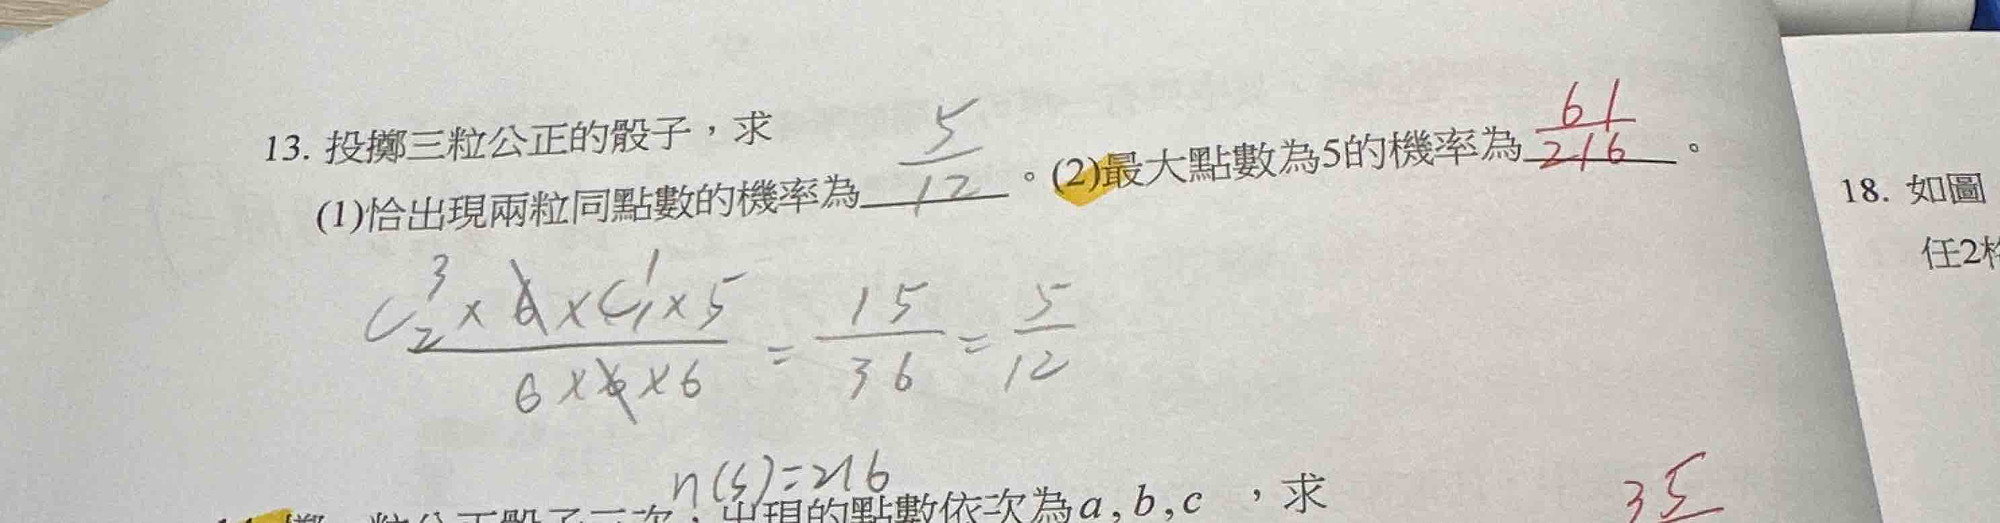 13. 投擲三粒公正的骰子，求
(1)恰出現兩粒同點數的機率為 5/12 。(2)最大點數為5的機率為 61/216 。
C³₂ × 6 × C¹₁ × 5 / 6 × 6 × 6 = 15/36 = 5/12
n(s)=216
出現的點數依次為a, b, c ，求
35
18. 如圖
任2格